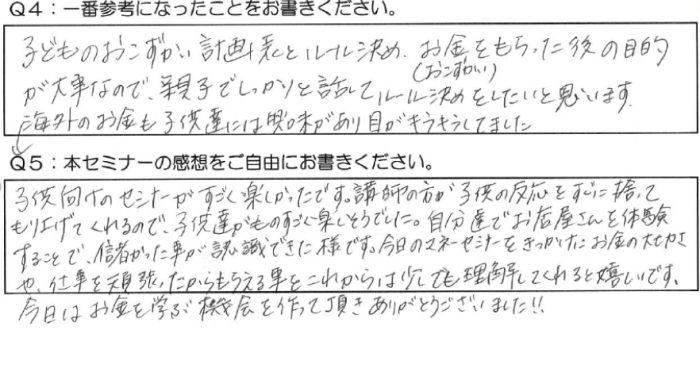 Q4：一番参考になったことをお書きください。
子どものおこずかい計画表とルール決め、お金をもらった後の目的
(おこずかい)
が大事なので、親子でしっかりと話してルール決めをしたいと思います。
海外のお金も子供達には興味があり目がキラキラしてました
Q5：本セミナーの感想をご自由にお書きください。
子供向けのセミナーがすごく楽しかったです。講師の方が子供の反応をすぐに捨って
もり上げてくれるので、子供達がものすごく楽しそうでした。自分達でお店屋さんを体験
することで、かった事が認識できた様です。今日のマネーセミナーをきっかけにお金の大切さ
や、仕事を頑張ったからもらえる事をこれからは少しでも理解してくれると嬉しいです。
今日はお金を学ぶ機会を作って頂きありがとうございました!!